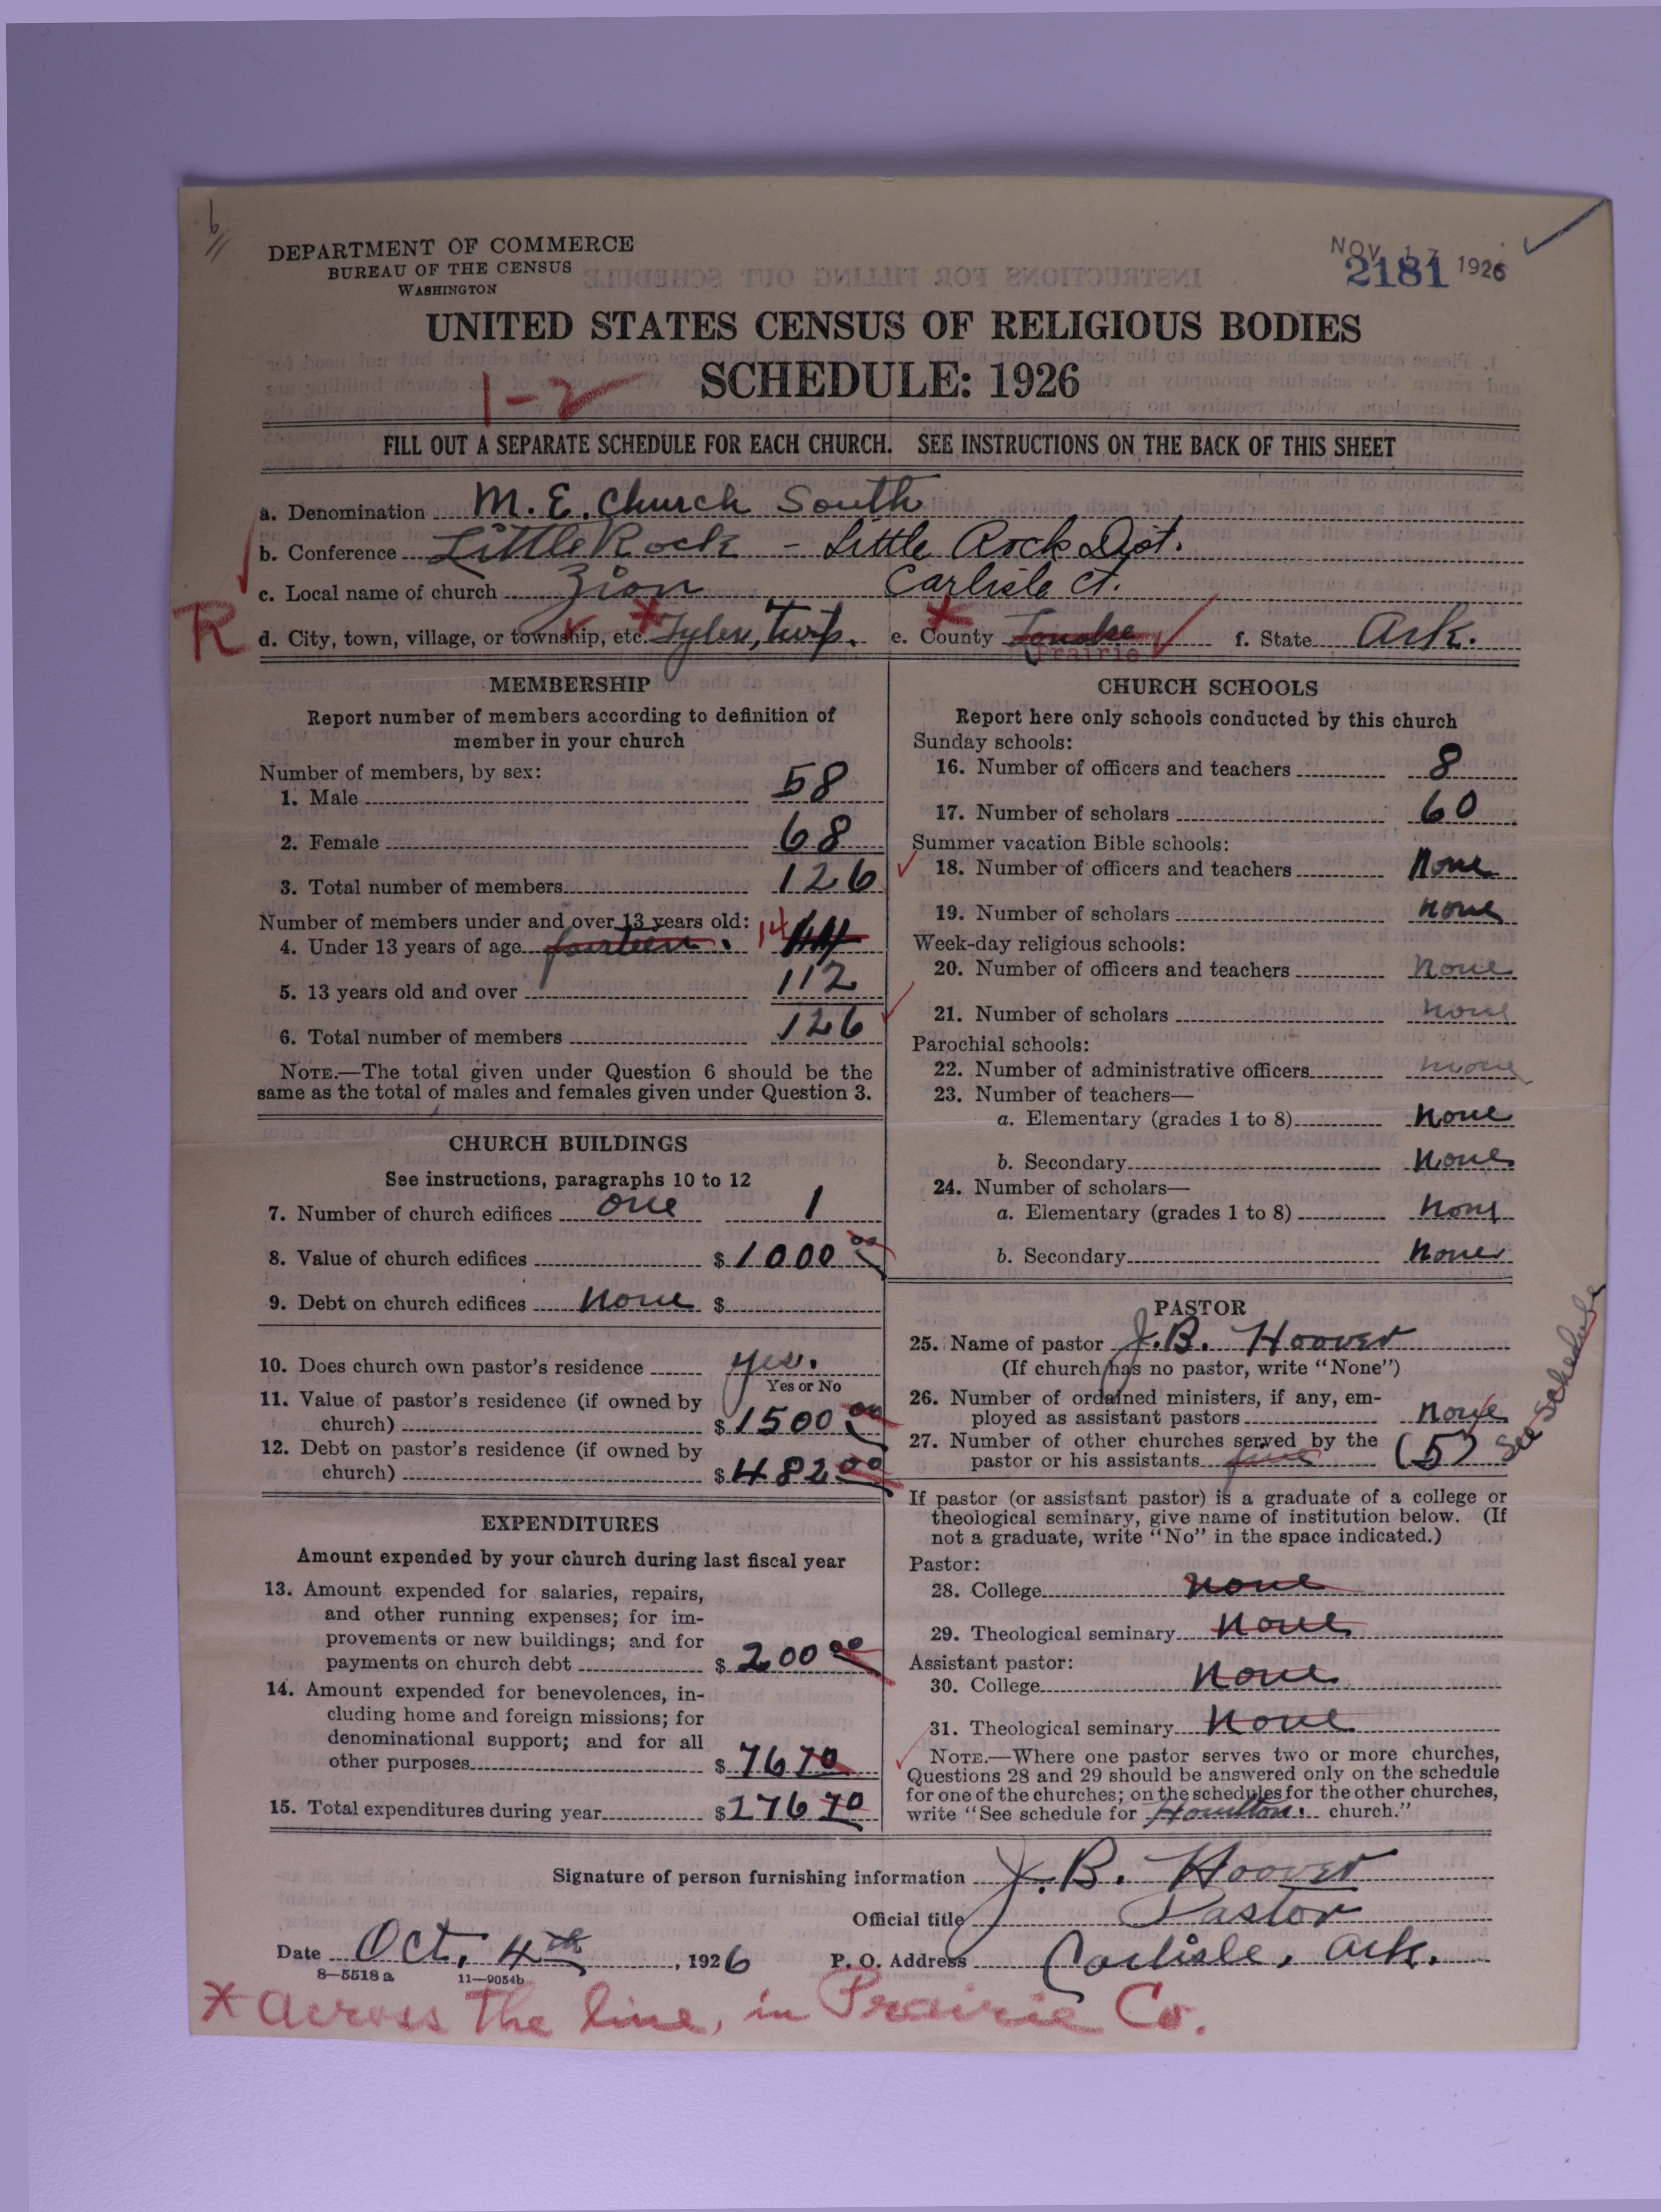 DEPARTMENT OF COMMERCE
BUREAU OF THE CENSUS
WASHINGTON
NOV 17 1926
2181
UNITED STATES CENSUS OF RELIGIOUS BODIES
SCHEDULE: 1926
1-2
FILL OUT A SEPARATE SCHEDULE FOR EACH CHURCH. SEE INSTRUCTIONS ON THE BACK OF THIS SHEET
a. Denomination M. E. Church South
b. Conference Little Rock - Little Rock Dist.
c. Local name of church Zion Carlisle Ct.
R d. City, town, village, or township, etc. Tyler, Twp. e. County Lonoke f. State Ark.
Prairie
MEMBERSHIP
Report number of members according to definition of
member in your church
Number of members, by sex:
1. Male 58
2. Female 68
3. Total number of members 126
Number of members under and over 13 years old:
4. Under 13 years of age fourteen. 14 14
5. 13 years old and over 112
6. Total number of members 126
NOTE.—The total given under Question 6 should be the
same as the total of males and females given under Question 3.
CHURCH BUILDINGS
See instructions, paragraphs 10 to 12
7. Number of church edifices one 1
8. Value of church edifices $ 1000 00
9. Debt on church edifices none $
10. Does church own pastor's residence yes.
Yes or No
11. Value of pastor's residence (if owned by
church) $ 1500 00
12. Debt on pastor's residence (if owned by
church) $ 482 00
EXPENDITURES
Amount expended by your church during last fiscal year
13. Amount expended for salaries, repairs,
and other running expenses; for im-
provements or new buildings; and for
payments on church debt $ 200 00
14. Amount expended for benevolences, in-
cluding home and foreign missions; for
denominational support; and for all
other purposes $ 76 70
15. Total expenditures during year $ 276 70
CHURCH SCHOOLS
Report here only schools conducted by this church
Sunday schools:
16. Number of officers and teachers 8
17. Number of scholars 60
Summer vacation Bible schools:
18. Number of officers and teachers None
19. Number of scholars none
Week-day religious schools:
20. Number of officers and teachers none
21. Number of scholars none
Parochial schools:
22. Number of administrative officers none
23. Number of teachers—
a. Elementary (grades 1 to 8) none
b. Secondary none
24. Number of scholars—
a. Elementary (grades 1 to 8) none
b. Secondary none
PASTOR
25. Name of pastor J. B. Hoover
(If church has no pastor, write "None")
26. Number of ordained ministers, if any, em-
ployed as assistant pastors none
27. Number of other churches served by the
pastor or his assistants five (5) See Schedule
If pastor (or assistant pastor) is a graduate of a college or
theological seminary, give name of institution below. (If
not a graduate, write "No" in the space indicated.)
Pastor:
28. College none
29. Theological seminary none
Assistant pastor:
30. College none
31. Theological seminary none
NOTE.—Where one pastor serves two or more churches,
Questions 28 and 29 should be answered only on the schedule
for one of the churches; on the schedules for the other churches,
write "See schedule for Hamilton. church."
Signature of person furnishing information J. B. Hoover
Official title Pastor
Date Oct, 4th, 1926 P. O. Address Carlisle, Ark.
8—5518 a 11—9054b
* across the line, in Prairie Co.